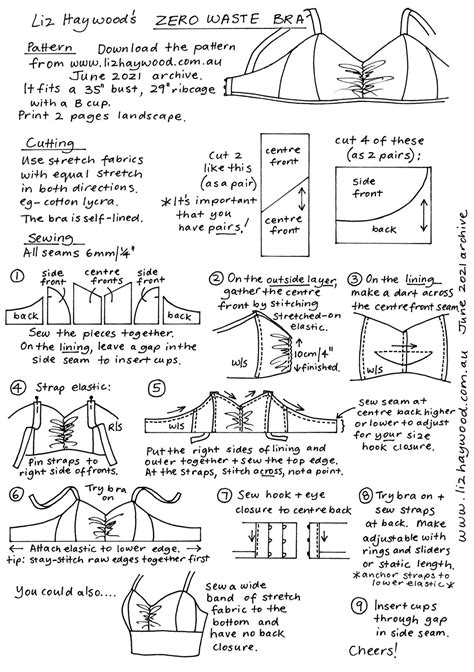 Liz Haywood's ZERO WASTE BRA
Pattern Download the pattern
from www.lizhaywood.com.au
June 2021 archive.
It fits a 35" bust, 29" ribcage
with a B cup.
Print 2 pages landscape.
Cutting
Use stretch fabrics
with equal stretch
in both directions.
eg- cotton lycra.
The bra is self-lined.
Cut 2
like this
(as a pair)
*It's important
that you
have pairs!
centre
front
centre
front
cut 4 of these
(as 2 pairs):
side
front
back
Sewing
All seams 6mm/¼"
1
side
front
centre
fronts
side
front
back
back
Sew the pieces together.
On the lining, leave a gap in the
side seam to insert cups.
2 On the outside layer,
gather the centre
front by stitching
stretched-on
elastic.
W/S
10cm/4"
finished.
3 On the lining
make a dart across
the centre front seam.
W/S
4 Strap elastic:
R/S
Pin straps to
right side of fronts.
5
W/S
Put the right sides of lining and
outer together + sew the top edge.
At the straps, stitch across, not a point.
Sew seam at
centre back higher
or lower to adjust
for your size
hook closure.
6
Try bra
on
← Attach elastic to lower edge. →
tip: stay-stitch raw edges together first
7 Sew hook + eye
closure to centre back
8 Try bra on +
sew straps
at back. Make
adjustable with
rings and sliders
or static length.
*anchor straps to
lower elastic*
You could also....
Sew a wide
band of stretch
fabric to the
bottom and
have no back
closure.
9 Insert cups
through gap
in side seam.
Cheers!
www.lizhaywood.com.au June 2021 archive